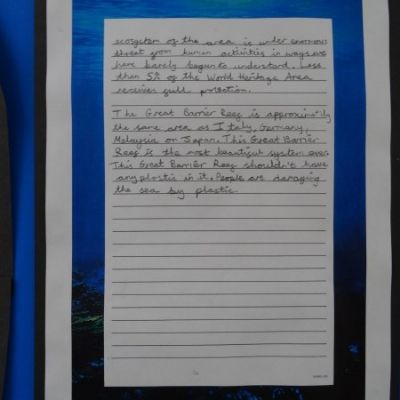 ecosystem of the area is under enormous
threat from human activities in ways we
have barely begun to understand. Less
than 5% of the World Heritage Area
receives full protection.
The Great Barrier Reef is approximatly
the same area as Italy, Germany,
Malaysia or Japan. This Great Barrier
Reef is the most beautiful system ever.
This Great Barrier Reef shouldn't have
any plastic in it. People are damaging
the sea by plastic.